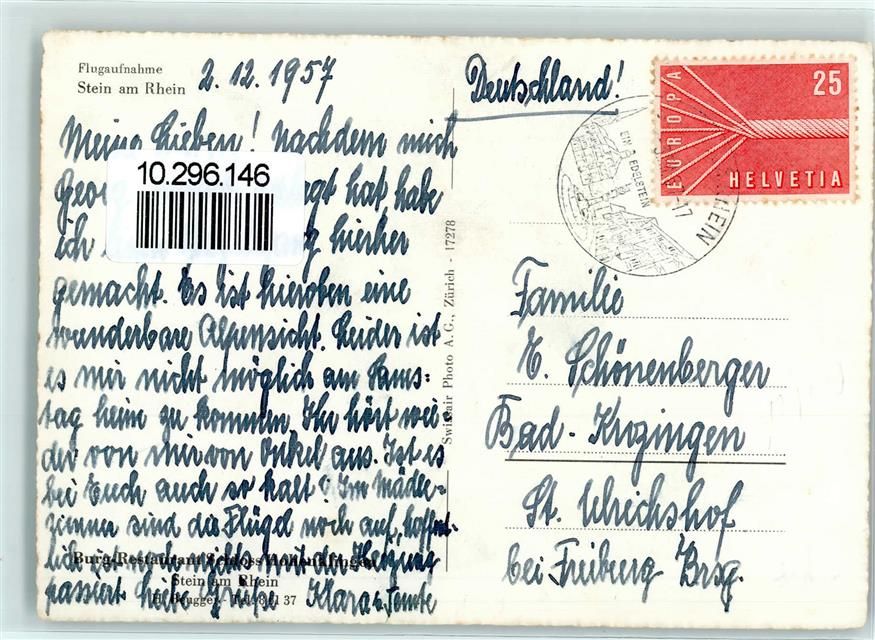 Flugaufnahme
Stein am Rhein
2.12.1957
Meine Lieben! Nachdem mich
Geor gt hat, habe
ich g hierher
gemacht. Es ist hieroben eine
wunderbare Alpensicht. Leider ist
es mir nicht möglich am Sams=
tag heim zu kommen. Ihr hört wei=
der von mir von Onkel aus. Ist es
bei Euch auch so kalt? Im
sind die Flügel noch auf, hoffent-
lich ist noch nichts mit der Heizung
passiert. Liebe Grüße Klara u. Tante
Burg-Restaurant Schloss Hohenklingen
Stein am Rhein
H. Beugger - Tel. 8 61 37
10.296.146
Swissair Photo A. G., Zürich - 17278
Deutschland!
EUROPA
25
HELVETIA
EDELSTEIN
RHEIN
Familie
E. Schönenberger
Bad-Krozingen
St. Ulrichshof
bei Freiburg Brsg.